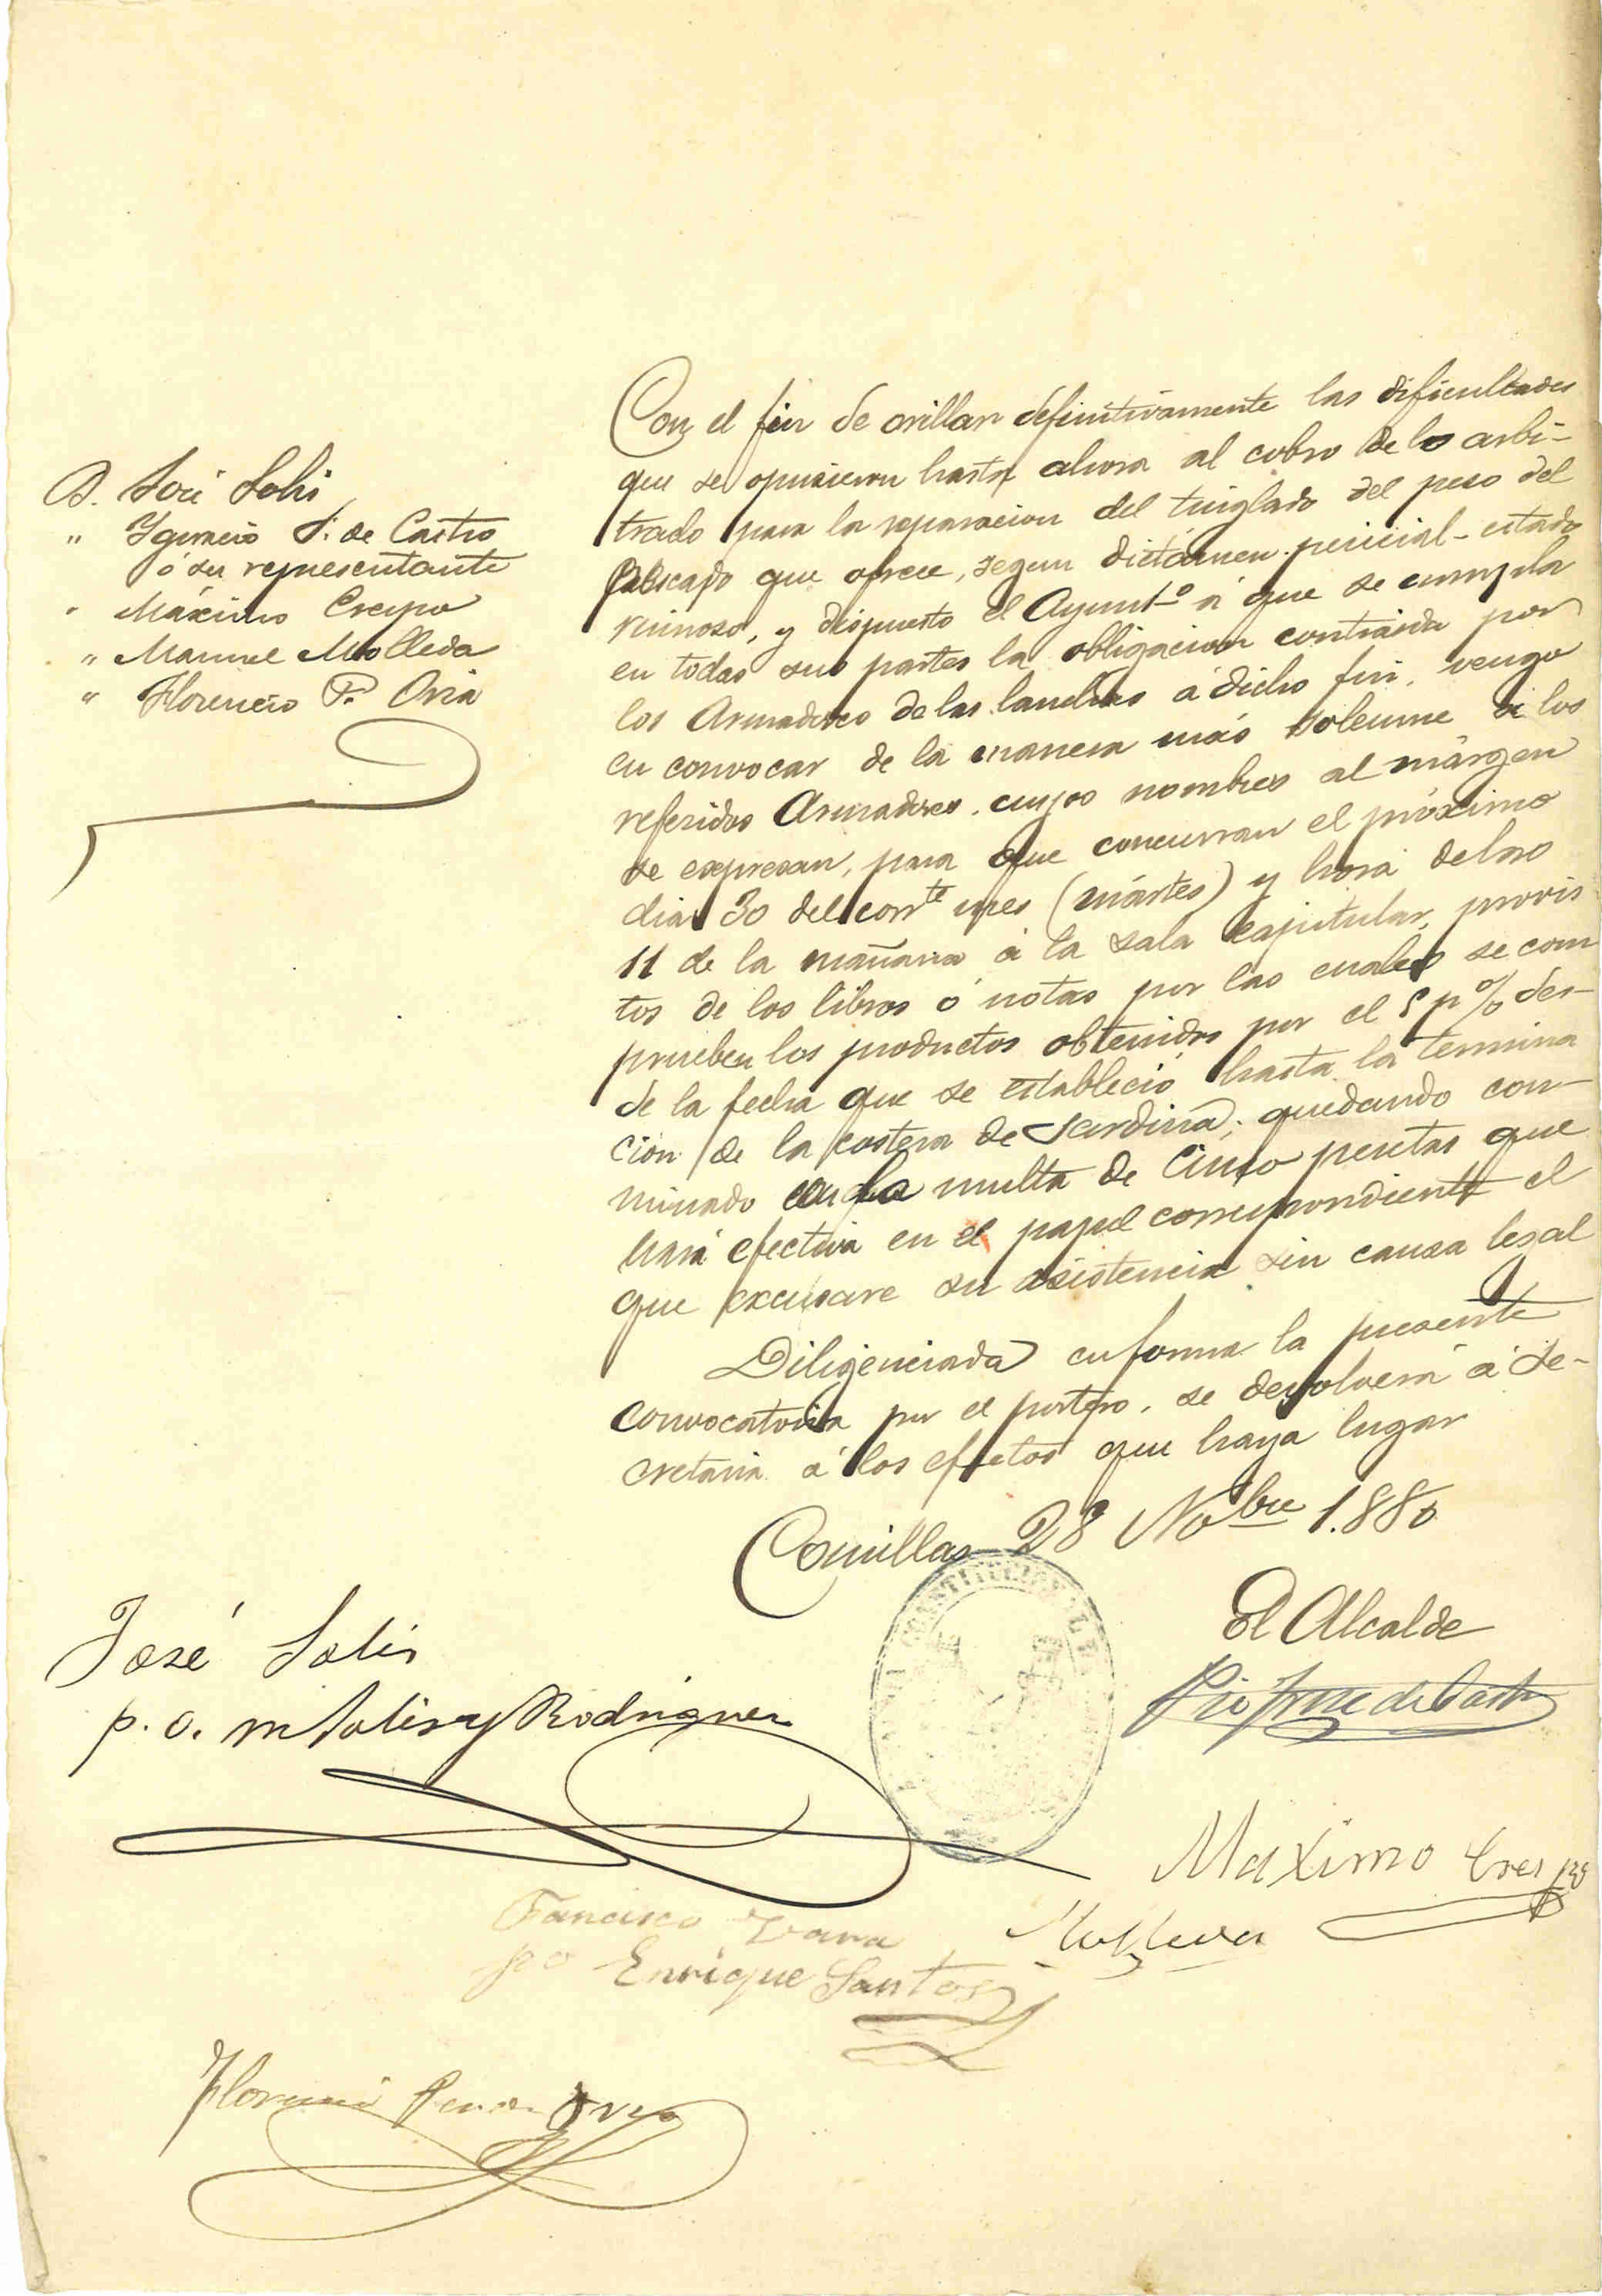 D. José Solis
" Ygnacio S. de Castro
ó su representante
" Máximo Crespo
" Manuel Molleda
" Florencio P. Oria
Con el fin de orillar definitivamente las dificultades
que se opusieron hasta ahora al cobro de lo arbi-
trado para la reparacion del tinglado del peso del
pescado que ofrece, segun dictámen pericial - estado
ruinoso, y dispuesto el Ayunt-º á que se cumpla
en todas sus partes la obligacion contraida por
los Armadores de las lanchas á dicho fin, vengo
en convocar de la manera más solemne á los
referidos Armadores, cuyos nombres al márgen
se expresan, para que concurran el próximo
dia 30 del corrte mes (mártes) y hora de las
11 de la mañana á la sala capitular, provis
tos de los libros ó notas por las cuales se com
prueben los productos obtenidos por el 5 p % des-
de la fecha que se estableció hasta la termina
cion de la costera de sardina; quedando con-
minado con la multa de Cinco pesetas que
hará efectiva en el papel correspondiente el
que excusare su asistencia sin causa legal
Diligenciada en forma la presente
convocatoria por el portero, se devolverá á Se-
cretaria á los efectos que haya lugar
Comillas 28 Nobre 1.880
El Alcalde
José Solis
p. o. m Solis y Rodriguez
CONSTITUCIONAL
Maximo Crespo
Molleda
Francisco
po Enrique Santos
Florencio Perez Oria